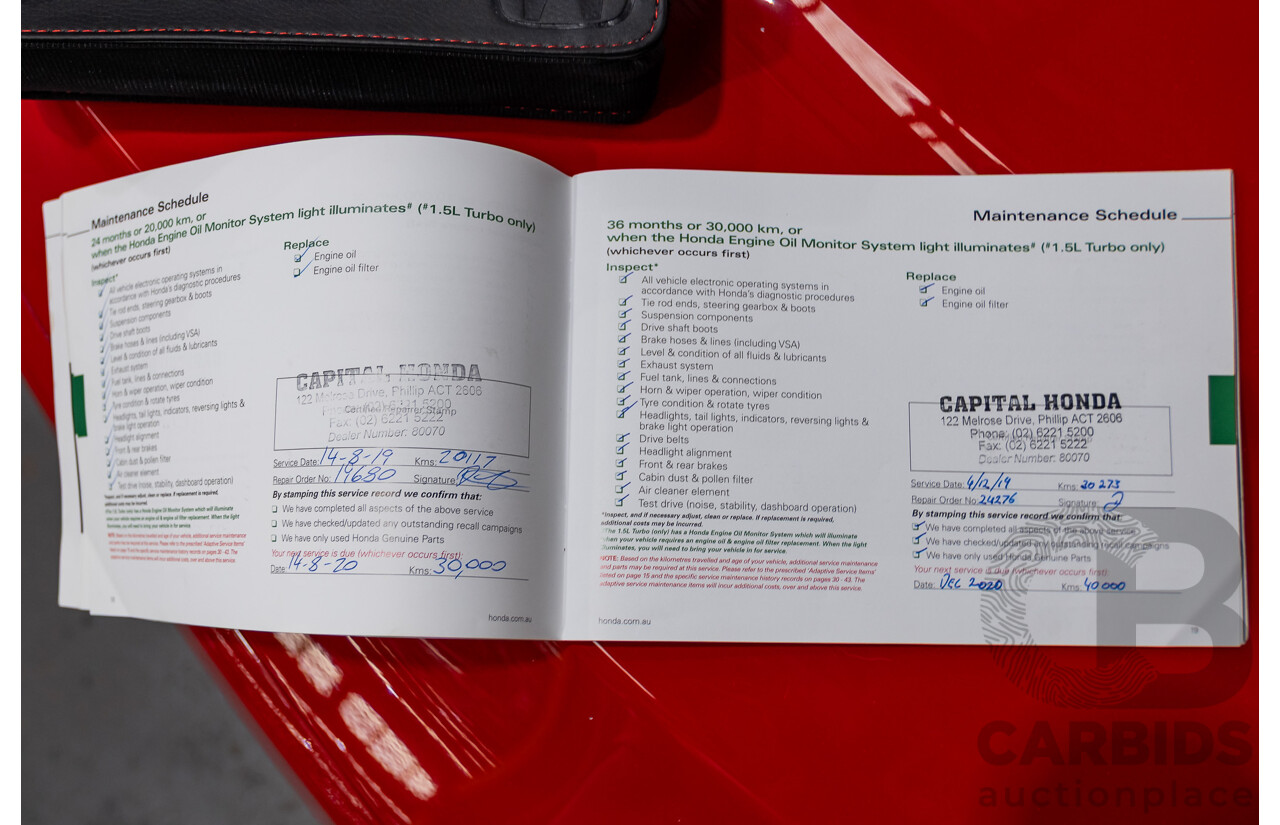 Maintenance Schedule
24 months or 20,000 km, or
when the Honda Engine Oil Monitor System light illuminates# (#1.5L Turbo only)
(whichever occurs first)
Inspect*
All vehicle electronic operating systems in
accordance with Honda's diagnostic procedures
Tie rod ends, steering gearbox & boots
Suspension components
Drive shaft boots
Brake hoses & lines (including VSA)
Level & condition of all fluids & lubricants
Exhaust system
Fuel tank, lines & connections
Horn & wiper operation, wiper condition
Tyre condition & rotate tyres
Headlights, tail lights, indicators, reversing lights &
brake light operation
Headlight alignment
Front & rear brakes
Cabin dust & pollen filter
Air cleaner element
Test drive (noise, stability, dashboard operation)
*Inspect, and if necessary adjust, clean or replace. If replacement is required,
additional costs may be incurred.
Replace
Engine oil
Engine oil filter
CAPITAL HONDA
122 Melrose Drive, Phillip ACT 2606
Certified Repairer Stamp
Fax: (02) 6221 5222
Dealer Number: 80070
Service Date: 14-8-19 Kms: 20117
Repair Order No: 19680 Signature:
By stamping this service record we confirm that:
We have completed all aspects of the above service
We have checked/updated any outstanding recall campaigns
We have only used Honda Genuine Parts
Your next service is due (whichever occurs first):
Date: 14-8-20 Kms: 30,000
honda.com.au
Maintenance Schedule
36 months or 30,000 km, or
when the Honda Engine Oil Monitor System light illuminates# (#1.5L Turbo only)
(whichever occurs first)
Inspect*
All vehicle electronic operating systems in
accordance with Honda's diagnostic procedures
Tie rod ends, steering gearbox & boots
Suspension components
Drive shaft boots
Brake hoses & lines (including VSA)
Level & condition of all fluids & lubricants
Exhaust system
Fuel tank, lines & connections
Horn & wiper operation, wiper condition
Tyre condition & rotate tyres
Headlights, tail lights, indicators, reversing lights &
brake light operation
Drive belts
Headlight alignment
Front & rear brakes
Cabin dust & pollen filter
Air cleaner element
Test drive (noise, stability, dashboard operation)
*Inspect, and if necessary adjust, clean or replace. If replacement is required,
additional costs may be incurred.
#The 1.5L Turbo (only) has a Honda Engine Oil Monitor System which will illuminate
when your vehicle requires an engine oil & engine oil filter replacement. When the light
illuminates, you will need to bring your vehicle in for service.
NOTE: Based on the kilometres travelled and age of your vehicle, additional service maintenance
and parts may be required at this service. Please refer to the prescribed 'Adaptive Service Items'
listed on page 15 and the specific service maintenance history records on pages 30 - 43. The
adaptive service maintenance items will incur additional costs, over and above this service.
Replace
Engine oil
Engine oil filter
CAPITAL HONDA
122 Melrose Drive, Phillip ACT 2606
Phone: (02) 6221 5200
Fax: (02) 6221 5222
Dealer Number: 80070
Service Date: 4/12/19 Kms: 30273
Repair Order No: 24276 Signature:
By stamping this service record we confirm that:
We have completed all aspects of the above service
We have checked/updated any outstanding recall campaigns
We have only used Honda Genuine Parts
Your next service is due (whichever occurs first):
Date: DEC 2020 Kms: 40000
honda.com.au
CARBIDS
auctionplace